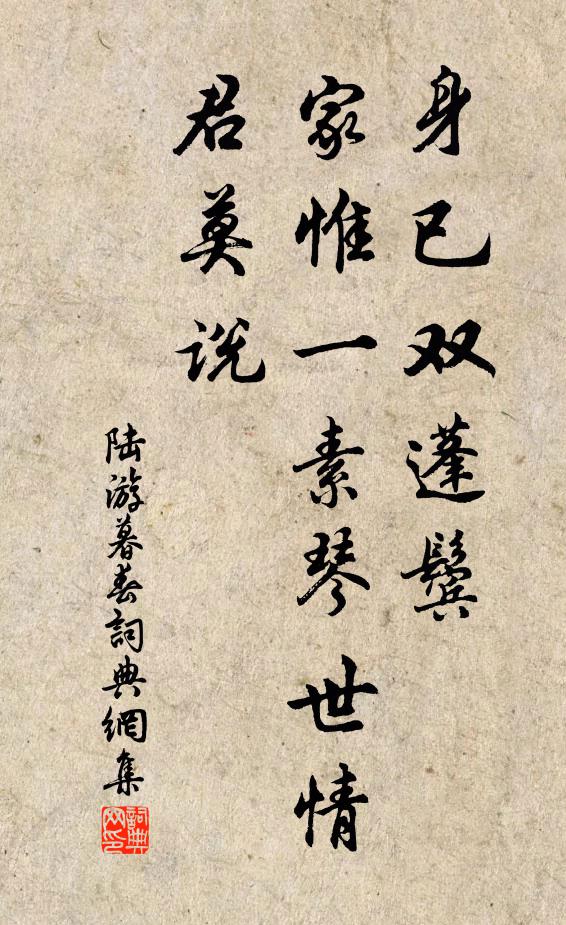 身已双蓬鬓
家惟一素琴世情
君莫说
陆游暮春詞典網集
詞典网印